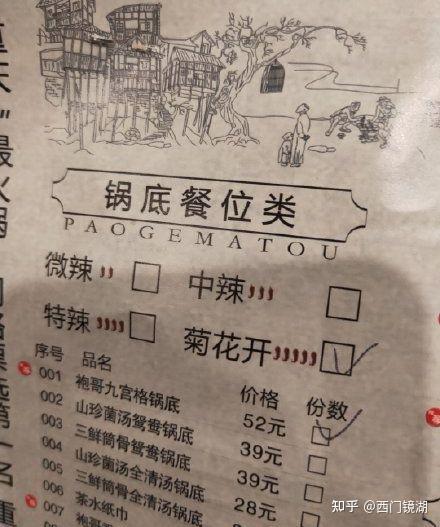 锅底餐位类
PAOGEMATOU
微辣 中辣
特辣 菊花开
序号 品名 价格 份数
001 袍哥九宫格锅底 52元
002 山珍菌汤鸳鸯锅底 39元
003 三鲜筒骨鸳鸯锅底 39元
004 山珍菌汤全清汤锅底 28元
005 三鲜筒骨全清汤锅底
006 茶水纸巾
007 袍哥
最火锅
知乎 @西门镜湖